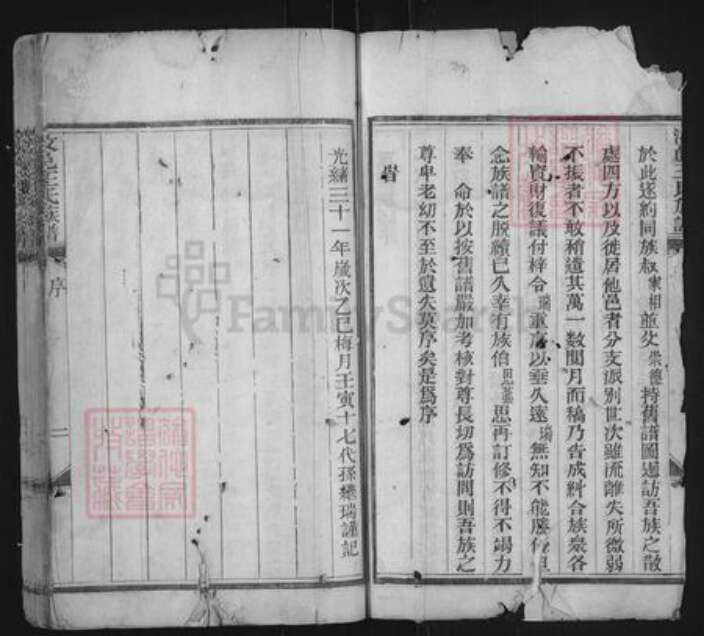 於此遂約同族叔家相並父崇德持舊譜圖遍訪吾族之散
處四方以及徙居他邑者分支派別世次雖流離失所微弱
不振者不敢稍遺其萬一數閱月而稿乃告成糾合族衆各
輸貲財復議付梓令瑞重 以垂久遠瑞無知不能勝任但
念族譜之脫續已久幸有族伯 思再訂修不得不竭力
奉 命於以按舊譜嚴加考核對尊長切爲訪問則吾族之
尊卑老幼不至於遺失莫序矣是爲序
旹
光緒三十一年歲次乙巳梅月壬寅十七代孫繼瑞謹記
王氏族譜
序
FamilySearch